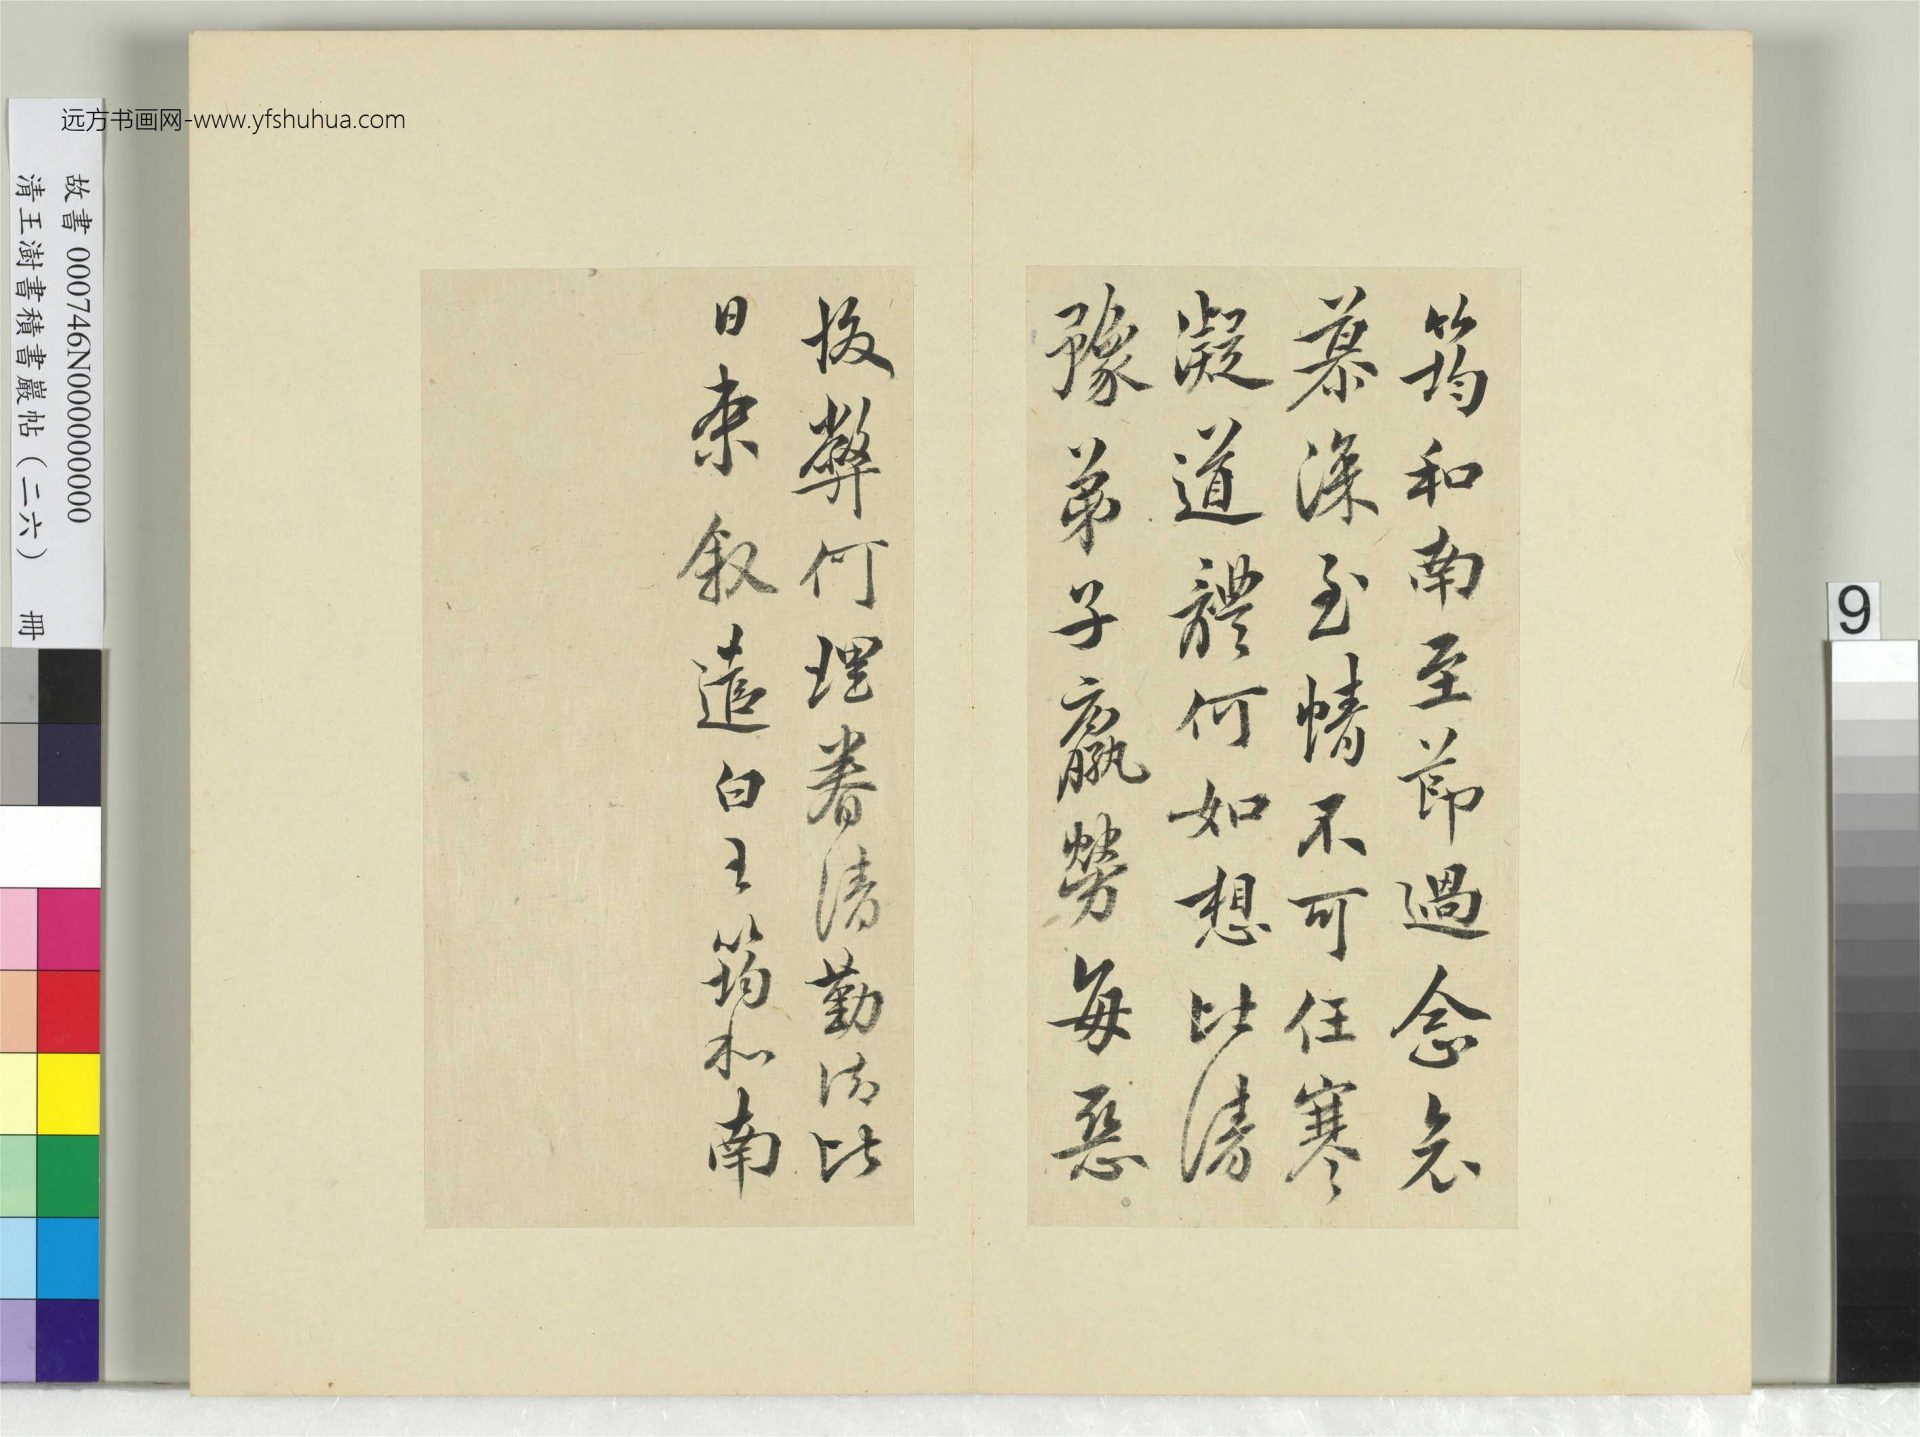 筠和南至節過念念
慕深至情不可任寒
凝道體何如想比清
豫弟子羸勞每惡
極弊何理眷清勤清比
日來敘遣白王筠和南
远方书画网-www.yfshuhua.com
故書 000746N000000000
清王澍書積書巖帖(二六) 冊
9